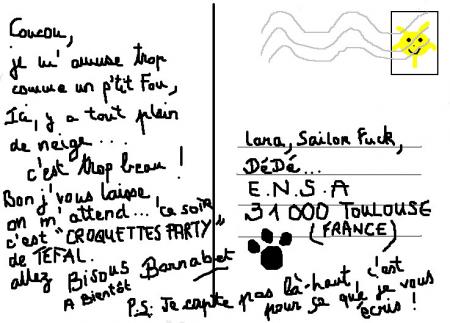 Coucou,
je m'amuse trop
comme un p'tit Fou,
Ici, y a tout plein
de neige....
c'est trop beau !
Bon j'vous laisse
on m'attend... ce soir
c'est "CROQUETTES PARTY"
de TEFAL.
allez BISOUS Barnabet
A Bientôt
P.S: Je capte pas là-haut, c'est
pour ça que je vous
écris !
Lara, Sailor Fuck,
DéDé...
E.N.S.A
31000 TOULOUSE
(FRANCE)